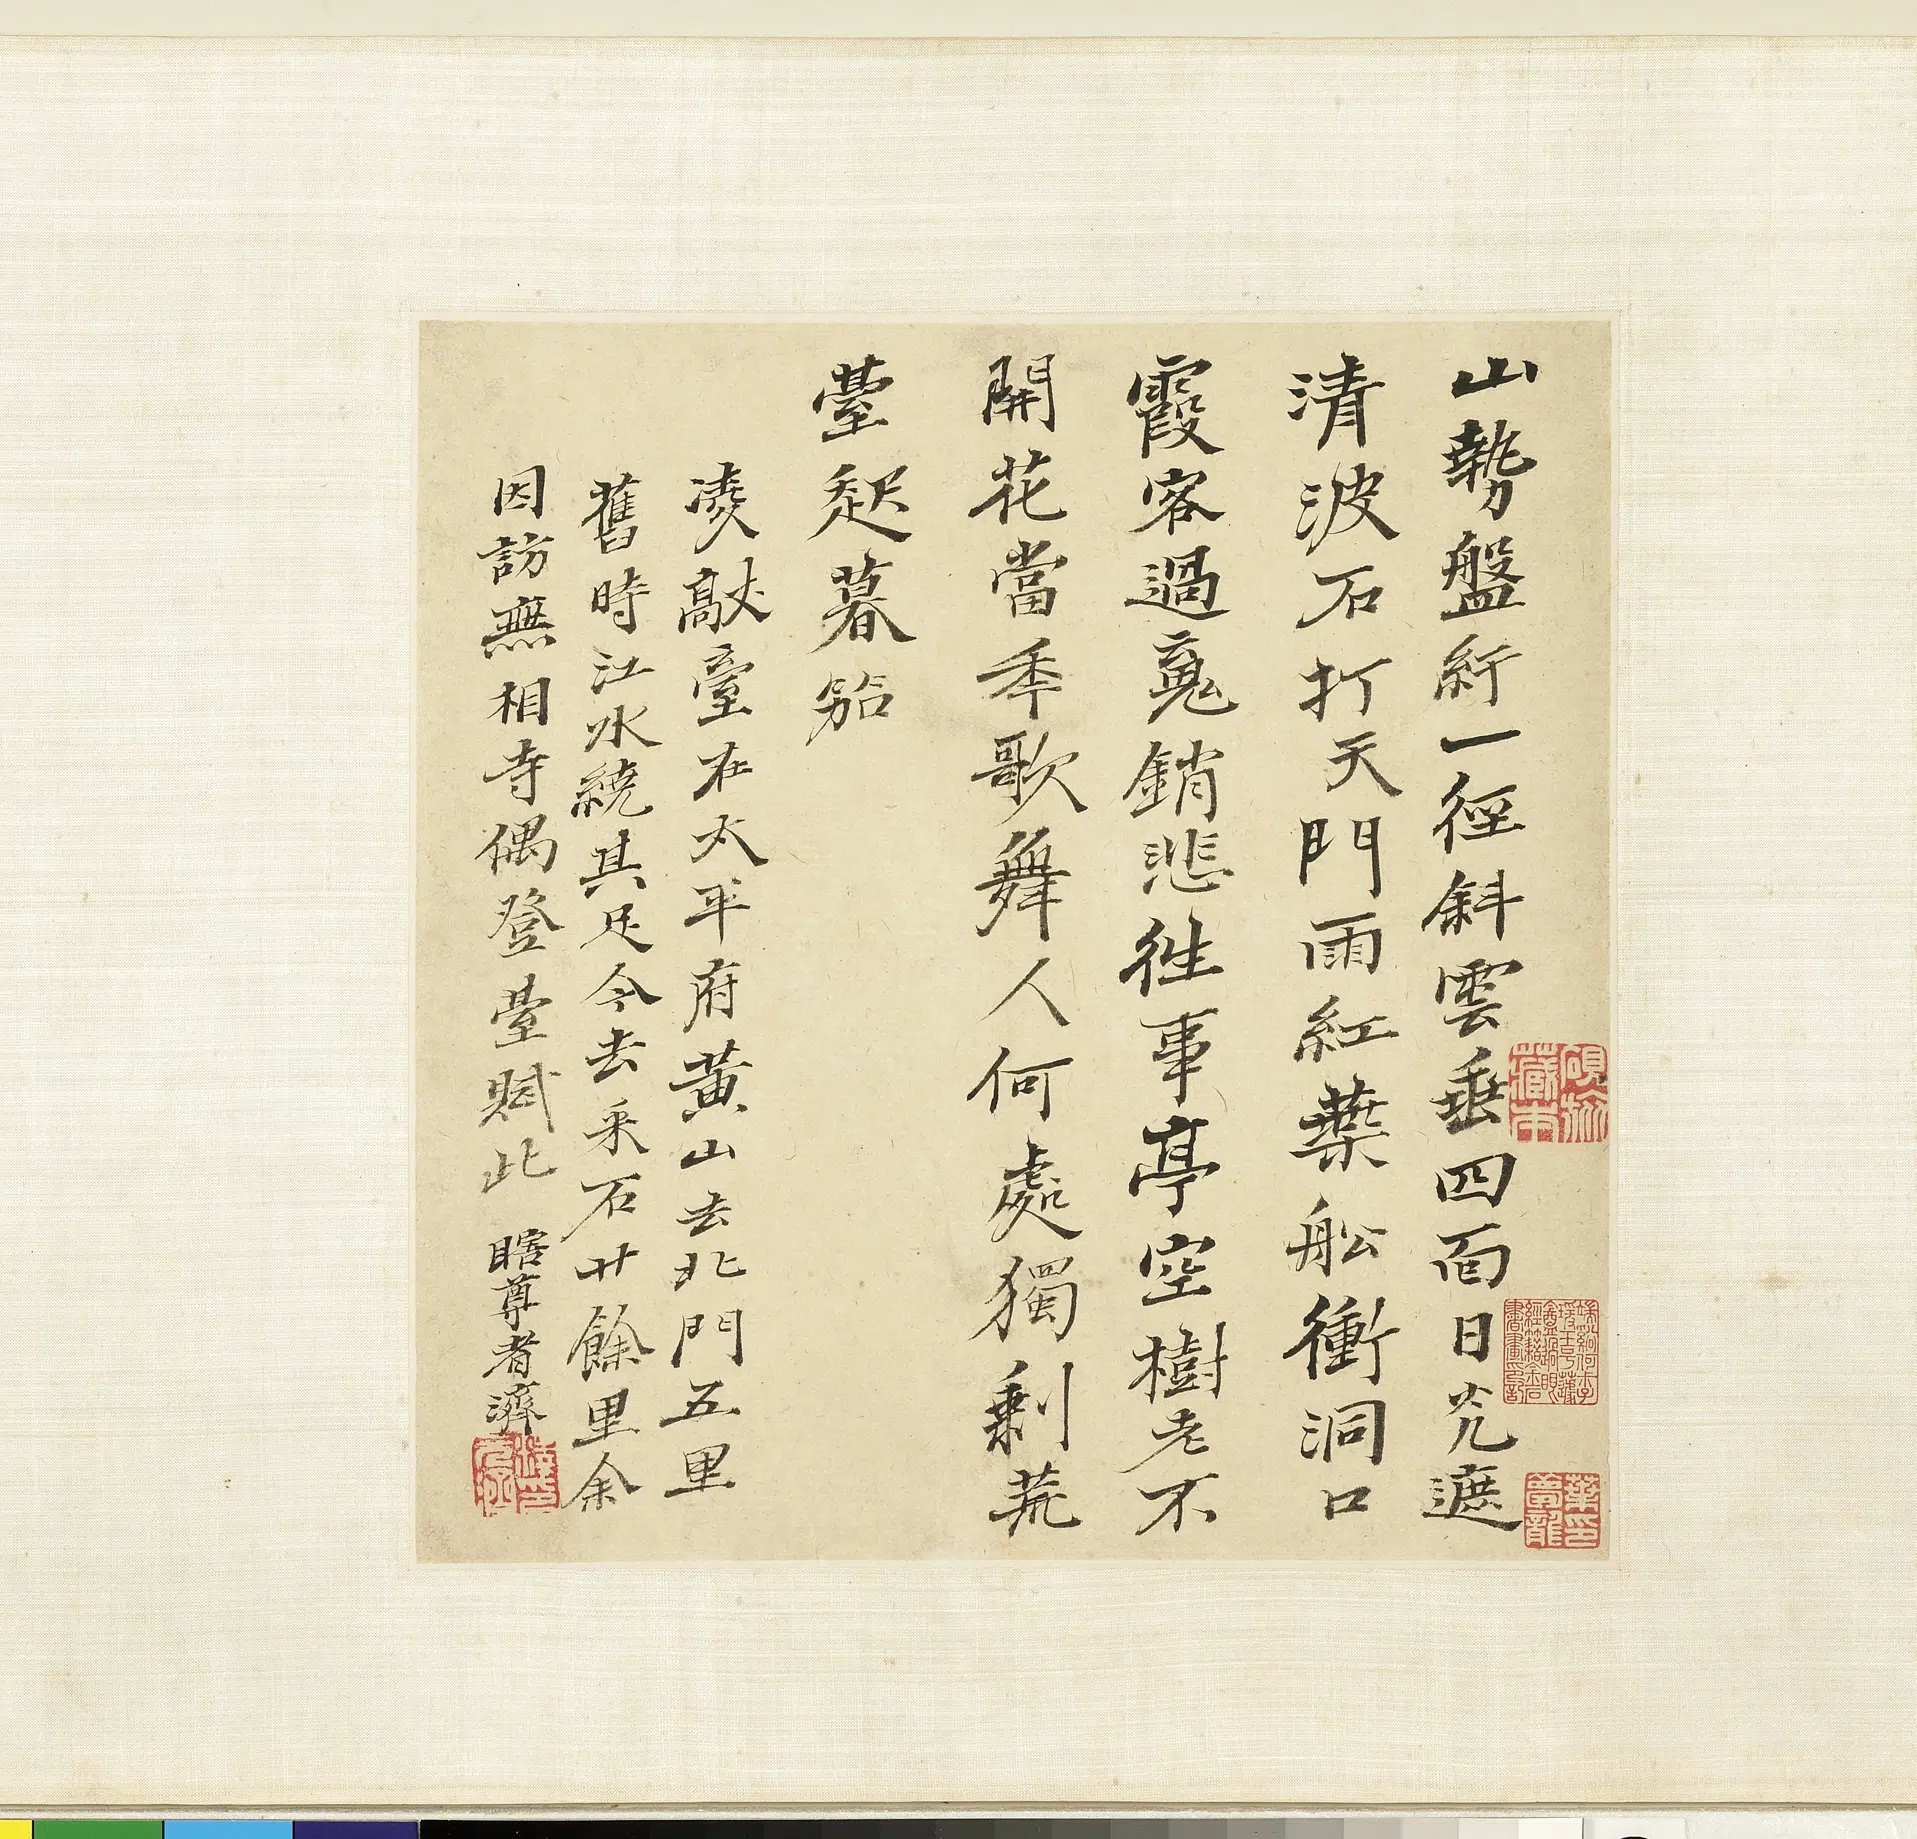 山勢盤紆一徑斜雲垂四面日光遮
清波石打天門雨紅葉船衝洞口
霞客過䰟銷悲往事亭空樹老不
開花當年歌舞人何處獨剩荒
臺起暮笳
凌歊臺在太平府黃山去北門五里
舊時江水繞其足今去采石廿餘里余
因訪無相寺偶登臺賦此 瞎尊者濟